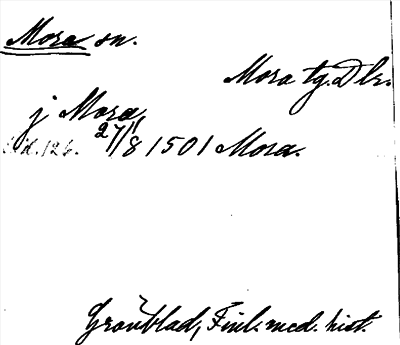 Mora sn.
Mora tg. Dlr.
j Mora,
27/8 1501 Mora.
Grönblad, Finl. med. hist.